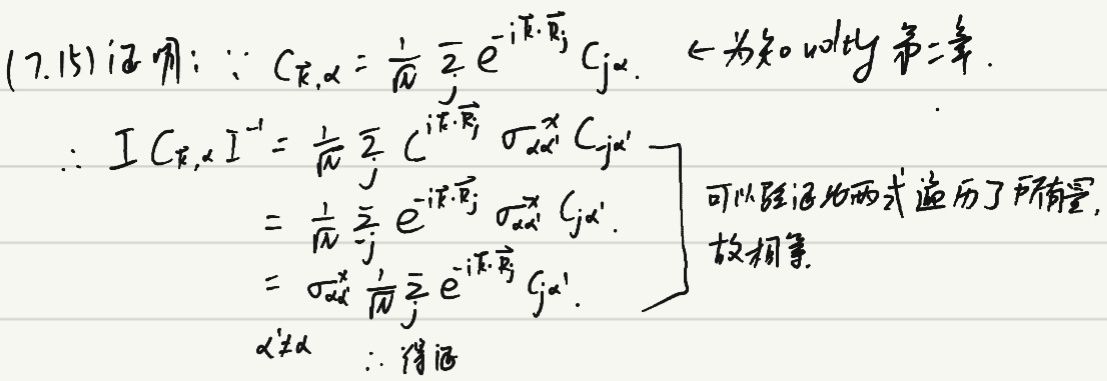 (7.15) 证明: ∵ C_{\vec{k},α} = \frac{1}{\sqrt{N}} \sum_j e^{-i\vec{k}·\vec{R}_j} C_{jα}. ← 为 notty 第二章.
∴ I C_{\vec{k},α} I^{-1} = \frac{1}{\sqrt{N}} \sum_j C^{i\vec{k}·\vec{R}_j} σ^x_{αα'} C_{-jα'}
= \frac{1}{\sqrt{N}} \sum_{-j} e^{-i\vec{k}·\vec{R}_j} σ^x_{αα'} C_{jα'}.
= σ^x_{αα'} \frac{1}{\sqrt{N}} \sum_j e^{-i\vec{k}·\vec{R}_j} C_{jα'}.
α'≠α ∴ 得证
可以验证两式遍历了所有
故相等.